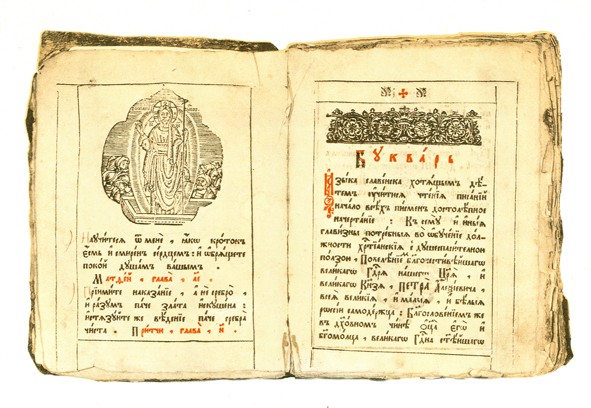 Научитеся ѿ мене, ꙗкѡ кротокъ
є҆смь и҆ смиренъ се́рдцемъ: и҆ ѡ҆брѧ́щете
поко́й душа́мъ ва́шымъ.
Матѳе́й, глава̀, а҃і.
Прїими́те наказа́нїе, а҆ не сребро̀,
и҆ ра́зумъ па́че зла́та и҆скꙋше́на:
и҆стѧзꙋ́йте же вѣ́дѣнїе па́че сребра̀
чи́ста. При́тчи, глава̀, и҃.
Бꙋква́рь
Ꙗ҆зы́ка славе́нска хотѧ́щымъ дѣ́-
темъ ᲂу҆чи́тисѧ чте́нїѧ писа́нїй
нача́ло всѣ́хъ пи́сменъ достолѣ́пное
начерта́нїе: Къ семꙋ̀ и҆ и҆ны́ѧ
глави́зны потре́бныѧ во ѡ҆бꙋче́нїе до́л-
жности хрⷭ҇тїа́нскїѧ съ дꙋшеспаси́телною
по́лзою, Повелѣ́нїемъ бл҃гочести́вѣйшагѡ
вели́кагѡ гдⷭ҇рѧ на́шегѡ Цр҃ѧ̀, и҆
вели́кагѡ Кнѧ́зѧ, Петра̀ А҆леѯі́евича,
всеѧ̀ вели́кїѧ и҆ ма́лыѧ, и҆ бѣ́лыѧ
рѡссі́и самоде́ржца: Бл҃гослове́нїемъ же
въ дх҃о́вномъ чи́нѣ ѻ҆ц҃а̀ є҆гѡ̀ и҆
бг҃омо́лца, вели́кагѡ гдⷭ҇и́на ст҃ѣ́йшагѡ